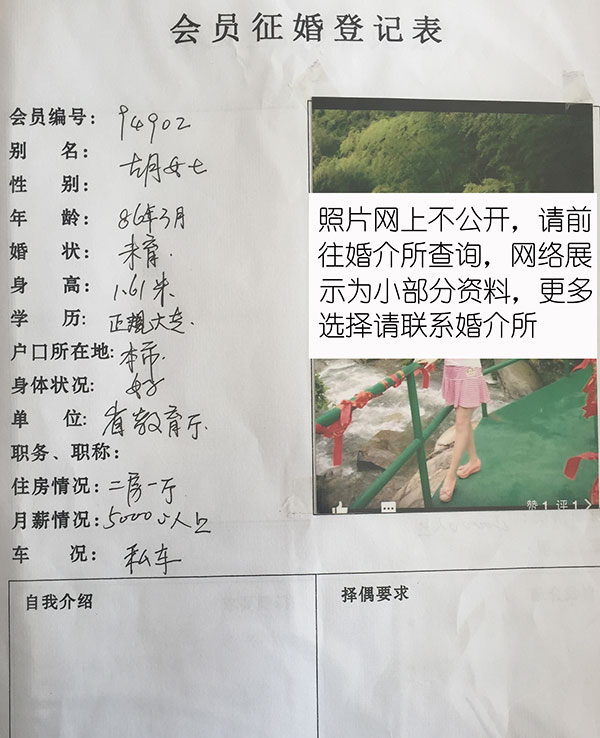 会员征婚登记表
会员编号: 94902
别 名: 胡女士
性 别:
年 龄: 86年3月
婚 状: 未育.
身 高: 1.61米
学 历: 正规大专.
户口所在地: 本市.
身体状况: 好
单 位: 省教育厅.
职务、职称:
住房情况: 二房一厅
月薪情况: 5000以上
车 况: 私车
照片网上不公开，请前
往婚介所查询，网络展
示为小部分资料，更多
选择请联系婚介所
赞 1 评 1
自我介绍
择偶要求